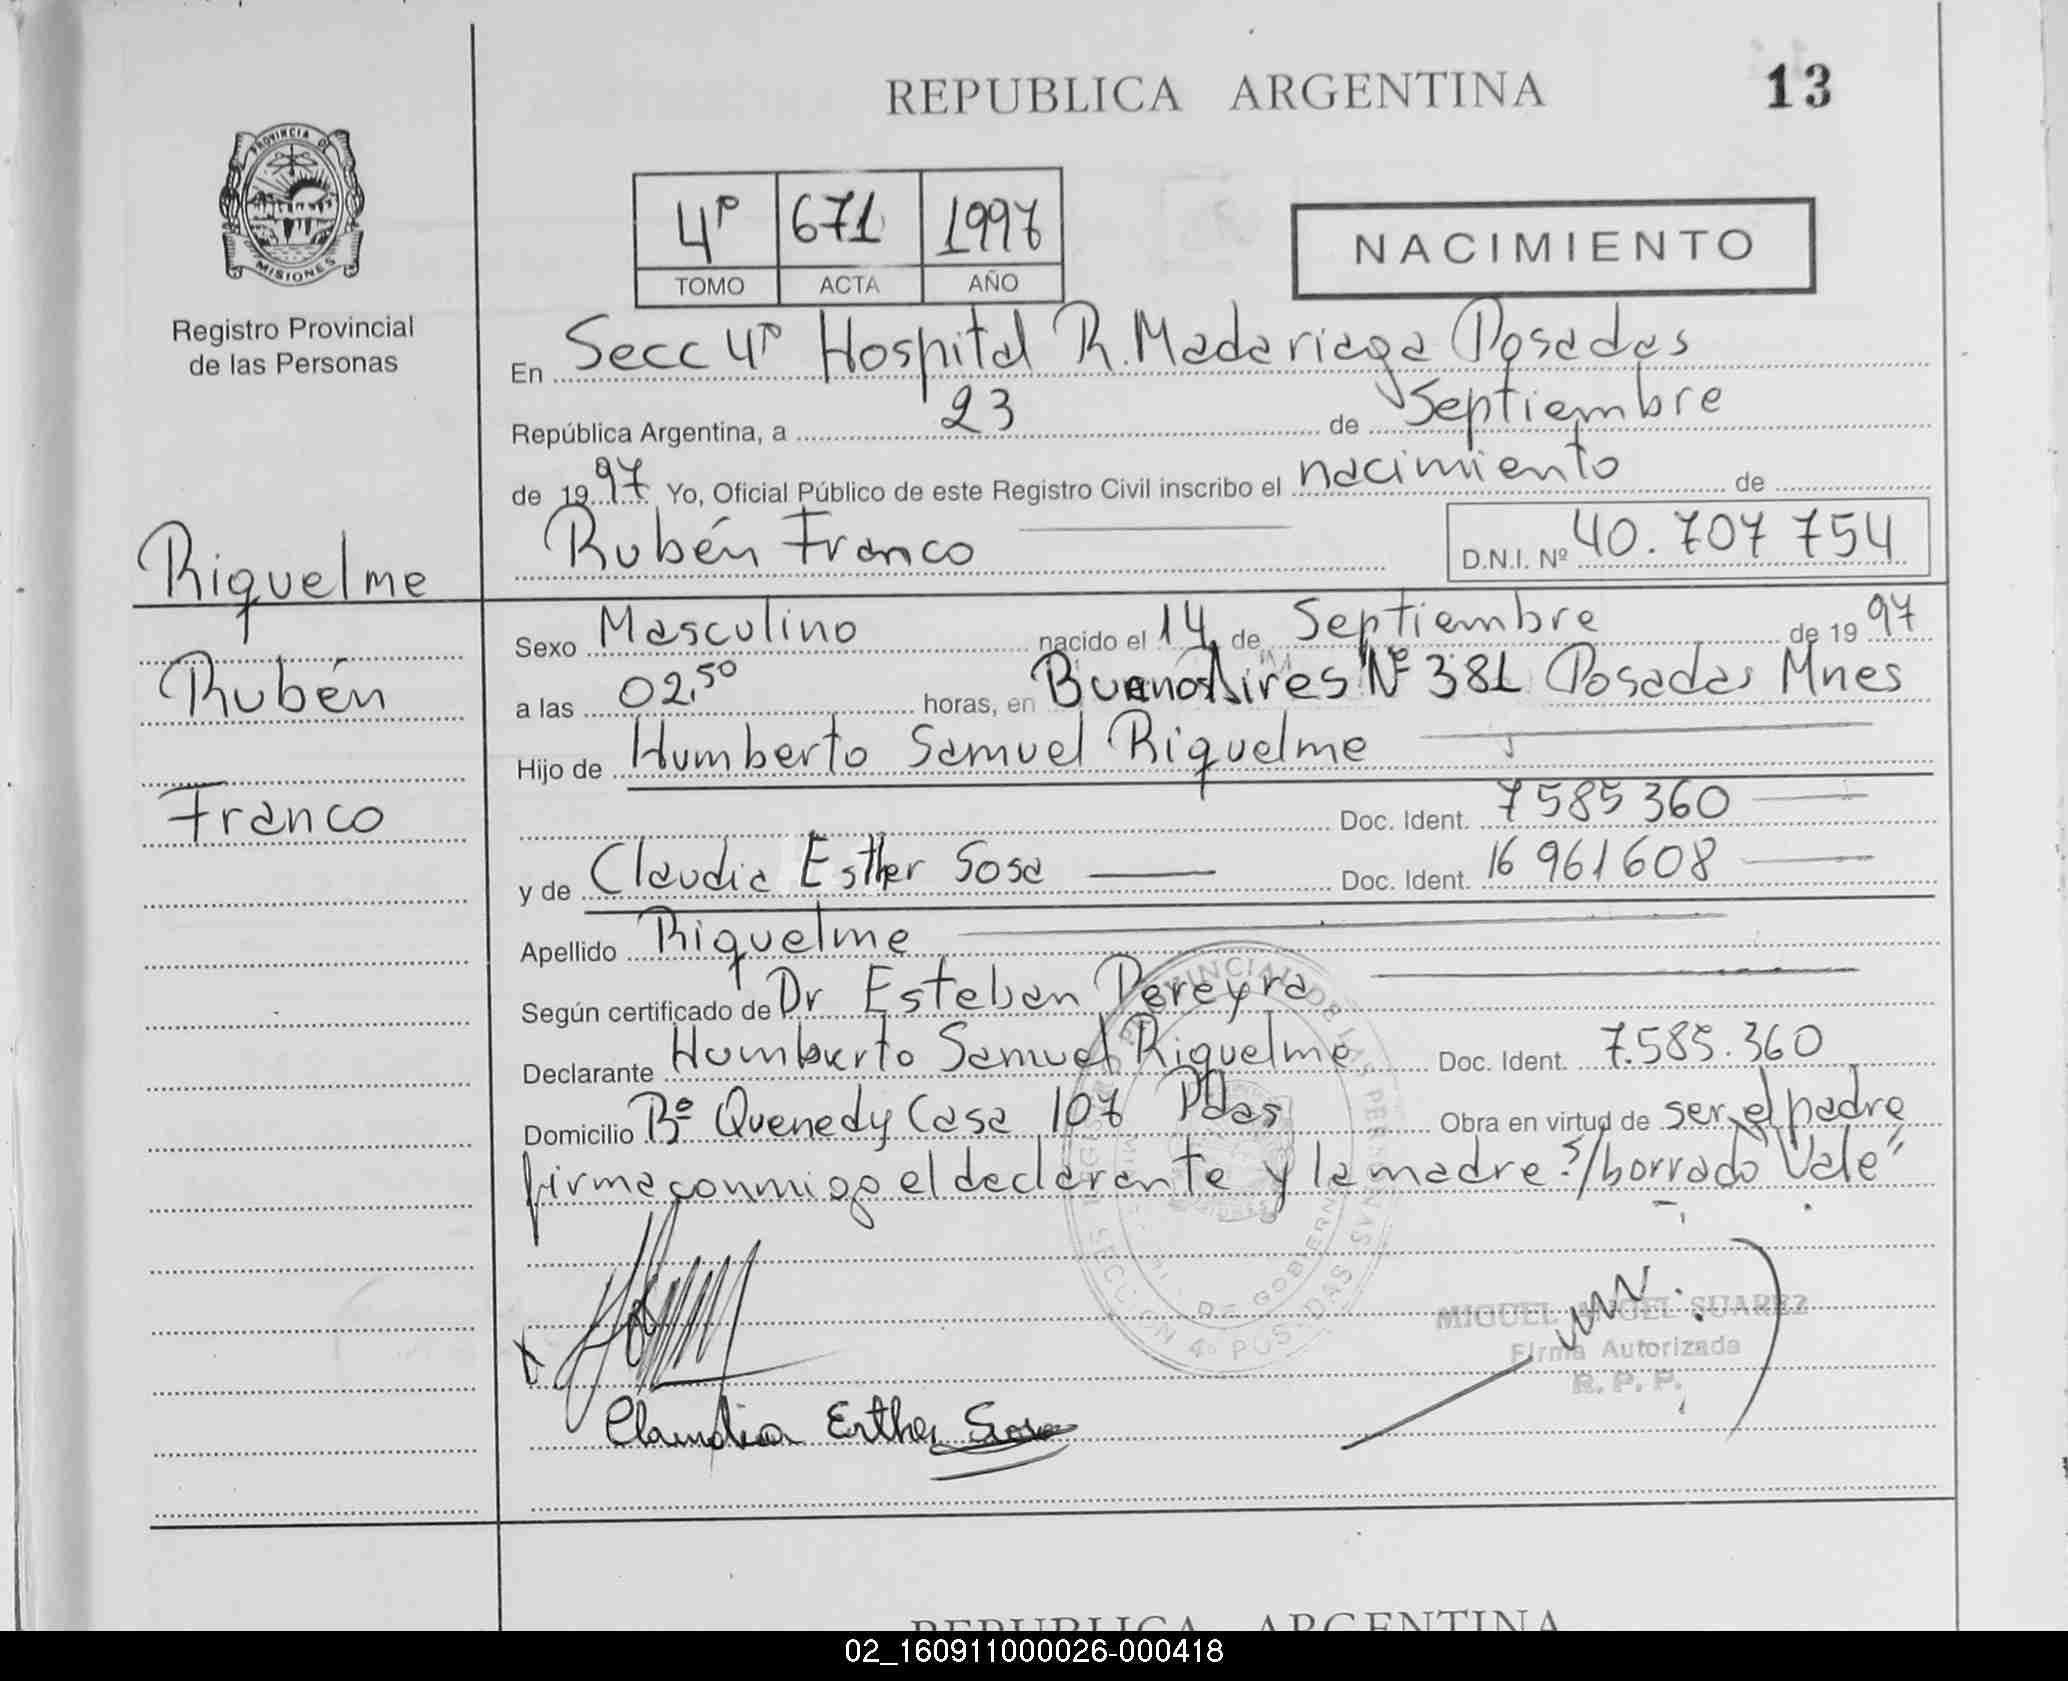 REPUBLICA ARGENTINA
13
PROVINCIA DE
MISIONES
Registro Provincial
de las Personas
4º 671 1997
TOMO ACTA AÑO
NACIMIENTO
En Secc 4º Hospital R. Madariaga Posadas
República Argentina, a 23 de Septiembre
de 1997 Yo, Oficial Público de este Registro Civil inscribo el nacimiento de
Rubén Franco D.N.I. Nº 40.707 754
Riquelme
Rubén
Franco
Sexo Masculino nacido el 14 de Septiembre de 1997
a las 02,50 horas, en Buenos Aires Nº 381 Posadas Mnes
Hijo de Humberto Samuel Riquelme
Doc. Ident. 7585360
y de Claudia Esther Sosa Doc. Ident. 16961608
Apellido Riquelme
Según certificado de Dr Esteban Pereyra
Declarante Humberto Samuel Riquelme Doc. Ident. 7.585.360
Domicilio Bº Quenedy Casa 107 Pdas Obra en virtud de ser el padre
firma conmigo el declarante y la madre S/borrado "Vale"
MIGUEL ANGEL SUAREZ
Firma Autorizada
R. P. P.
Claudia Esther Sosa
REPUBLICA ARGENTINA
02_160911000026-000418